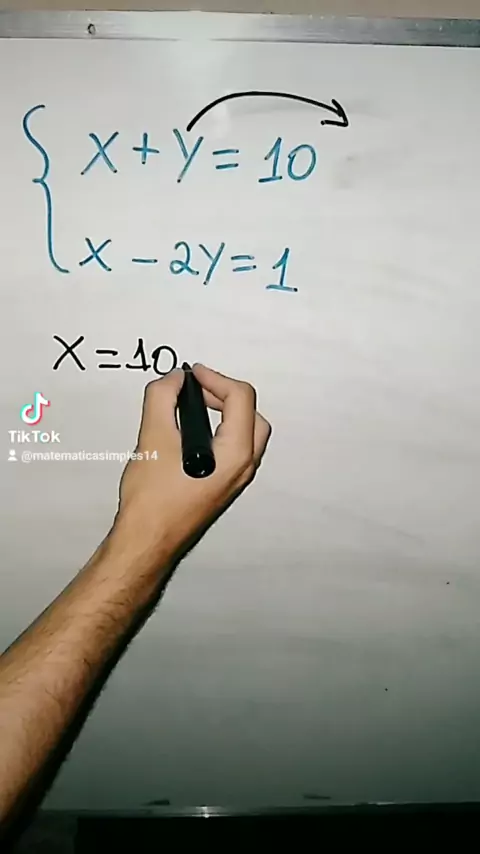 x + y = 10
x - 2y = 1
x = 10
TikTok
@matematicasimples14